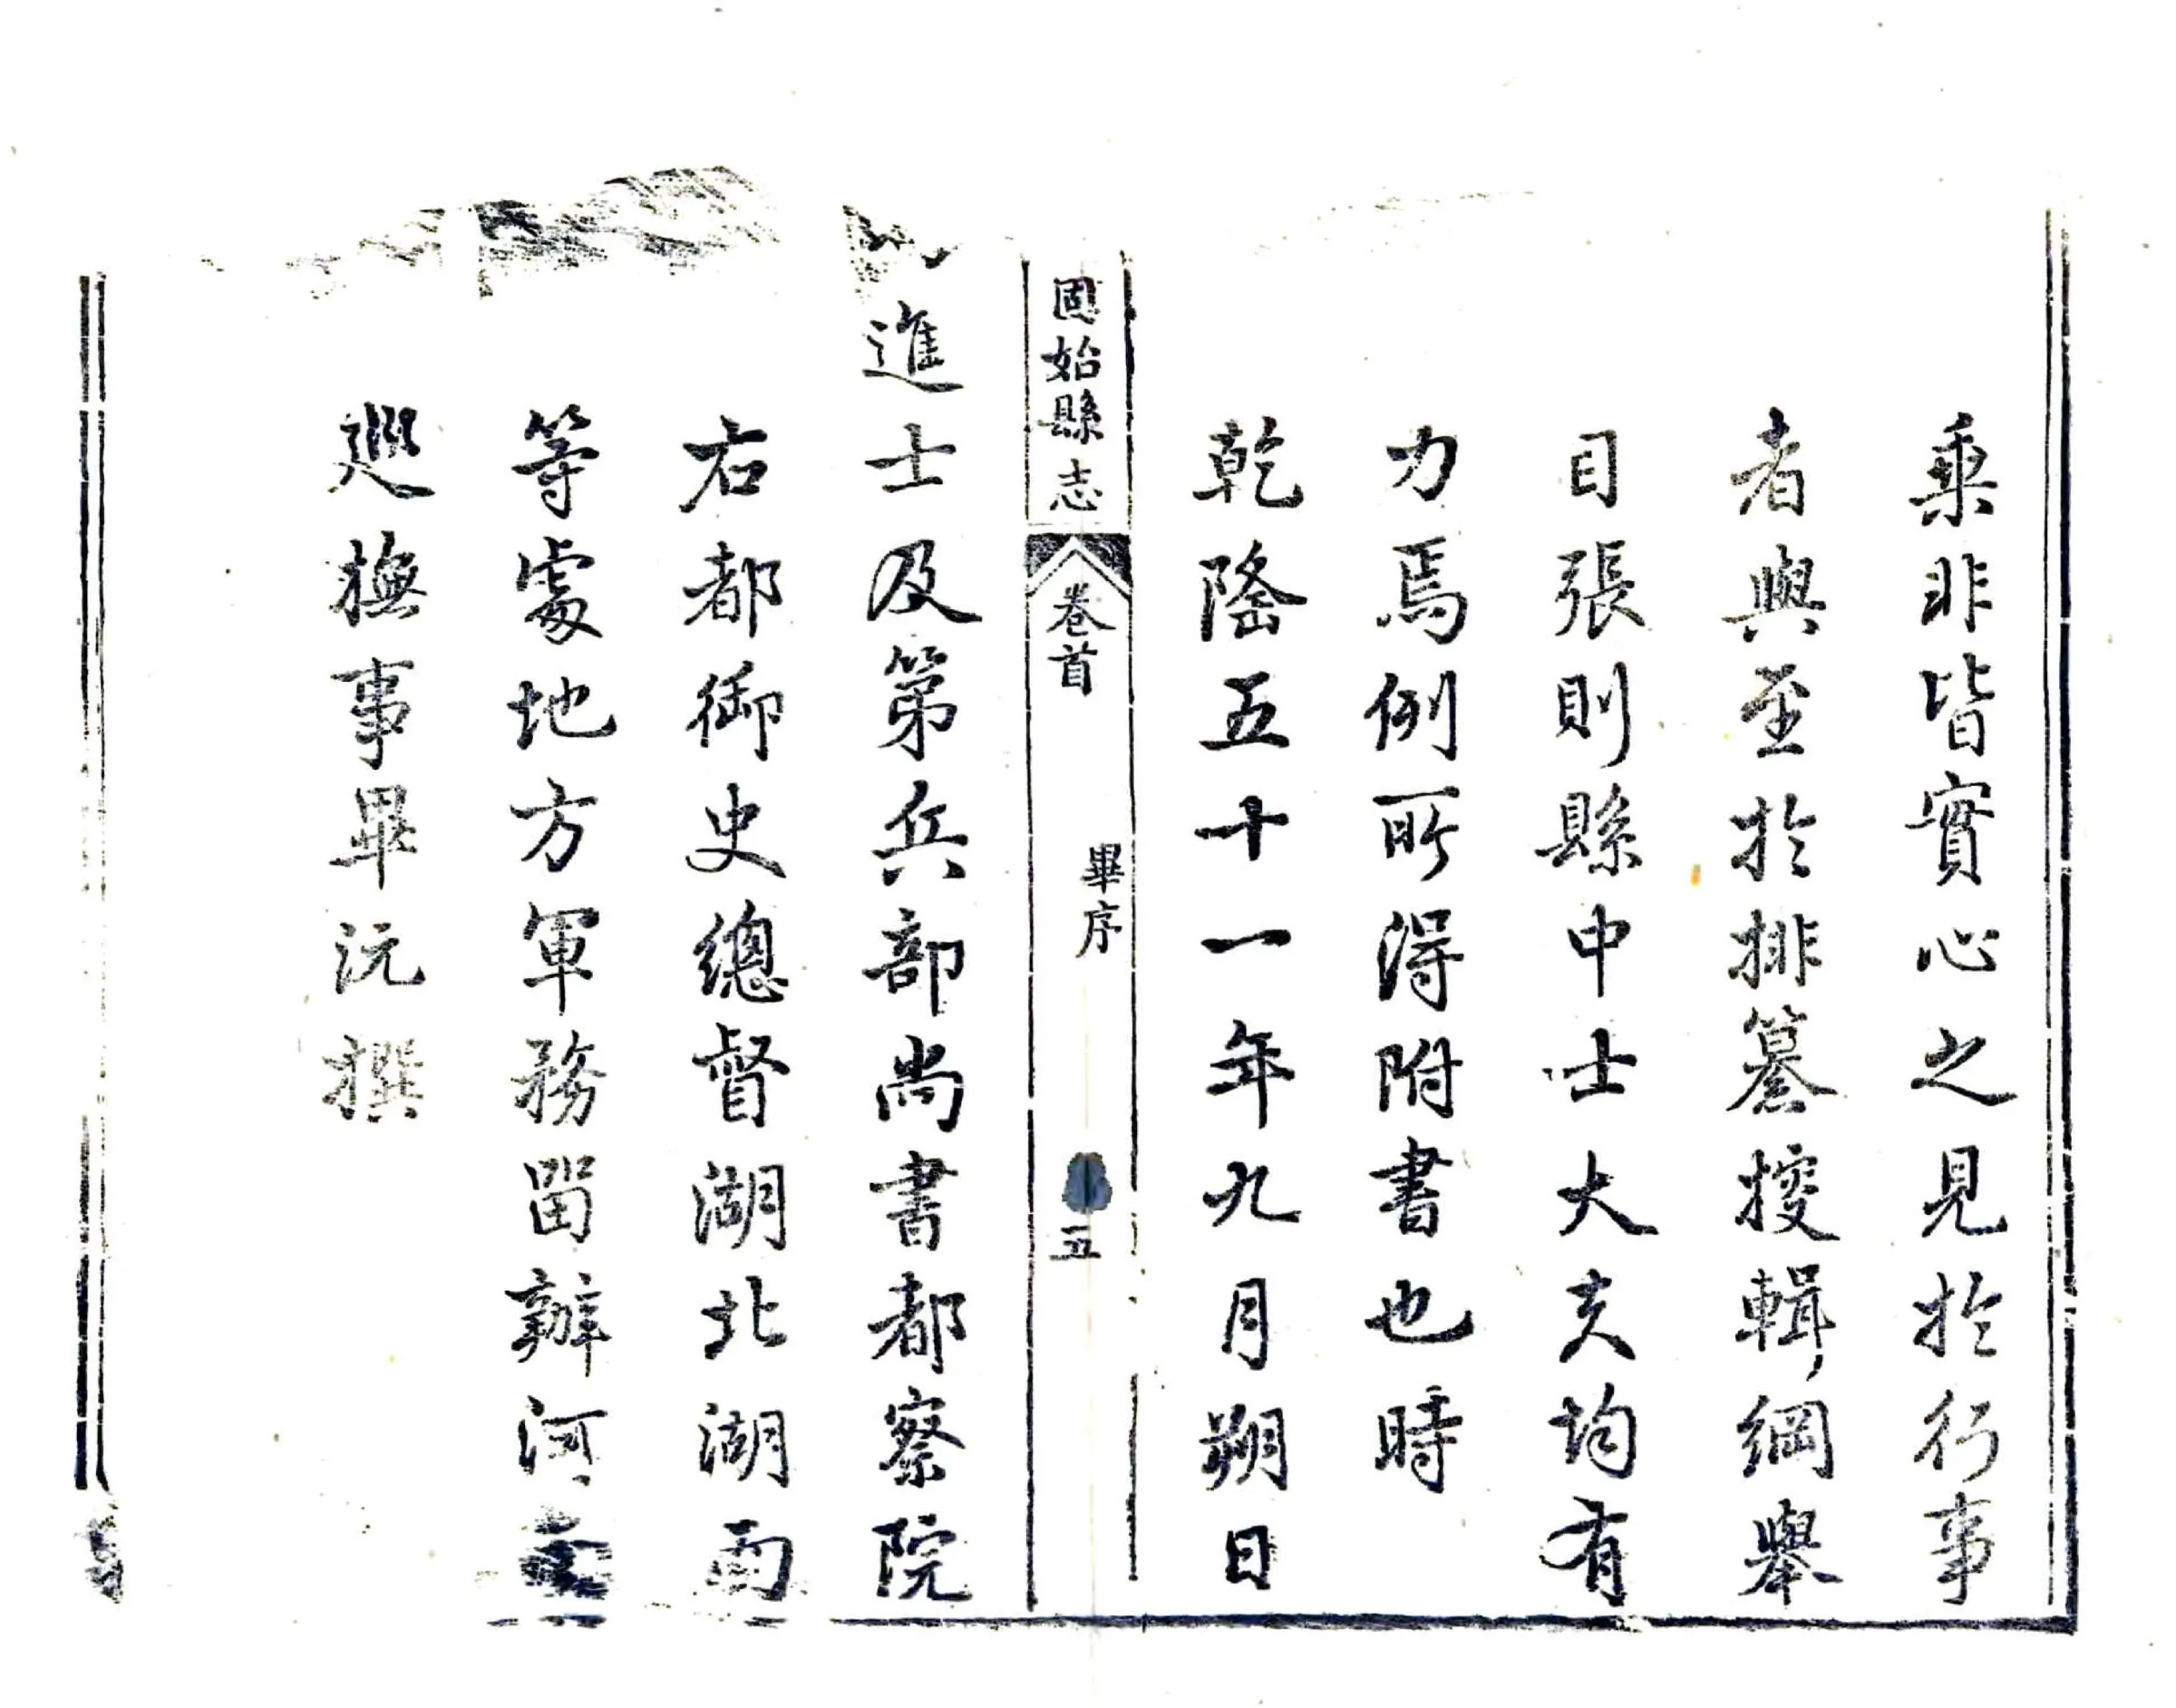 乘非皆實心之見於行事
者與至於排纂搜輯綱舉
目張則縣中士大夫均有
力焉例所得附書也時
乾隆五十一年九月朔日
固始縣志 卷首 畢序 五
進士及第兵部尚書都察院
右都御史總督湖北湖
等處地方軍務畱辦河
巡撫事畢沅撰